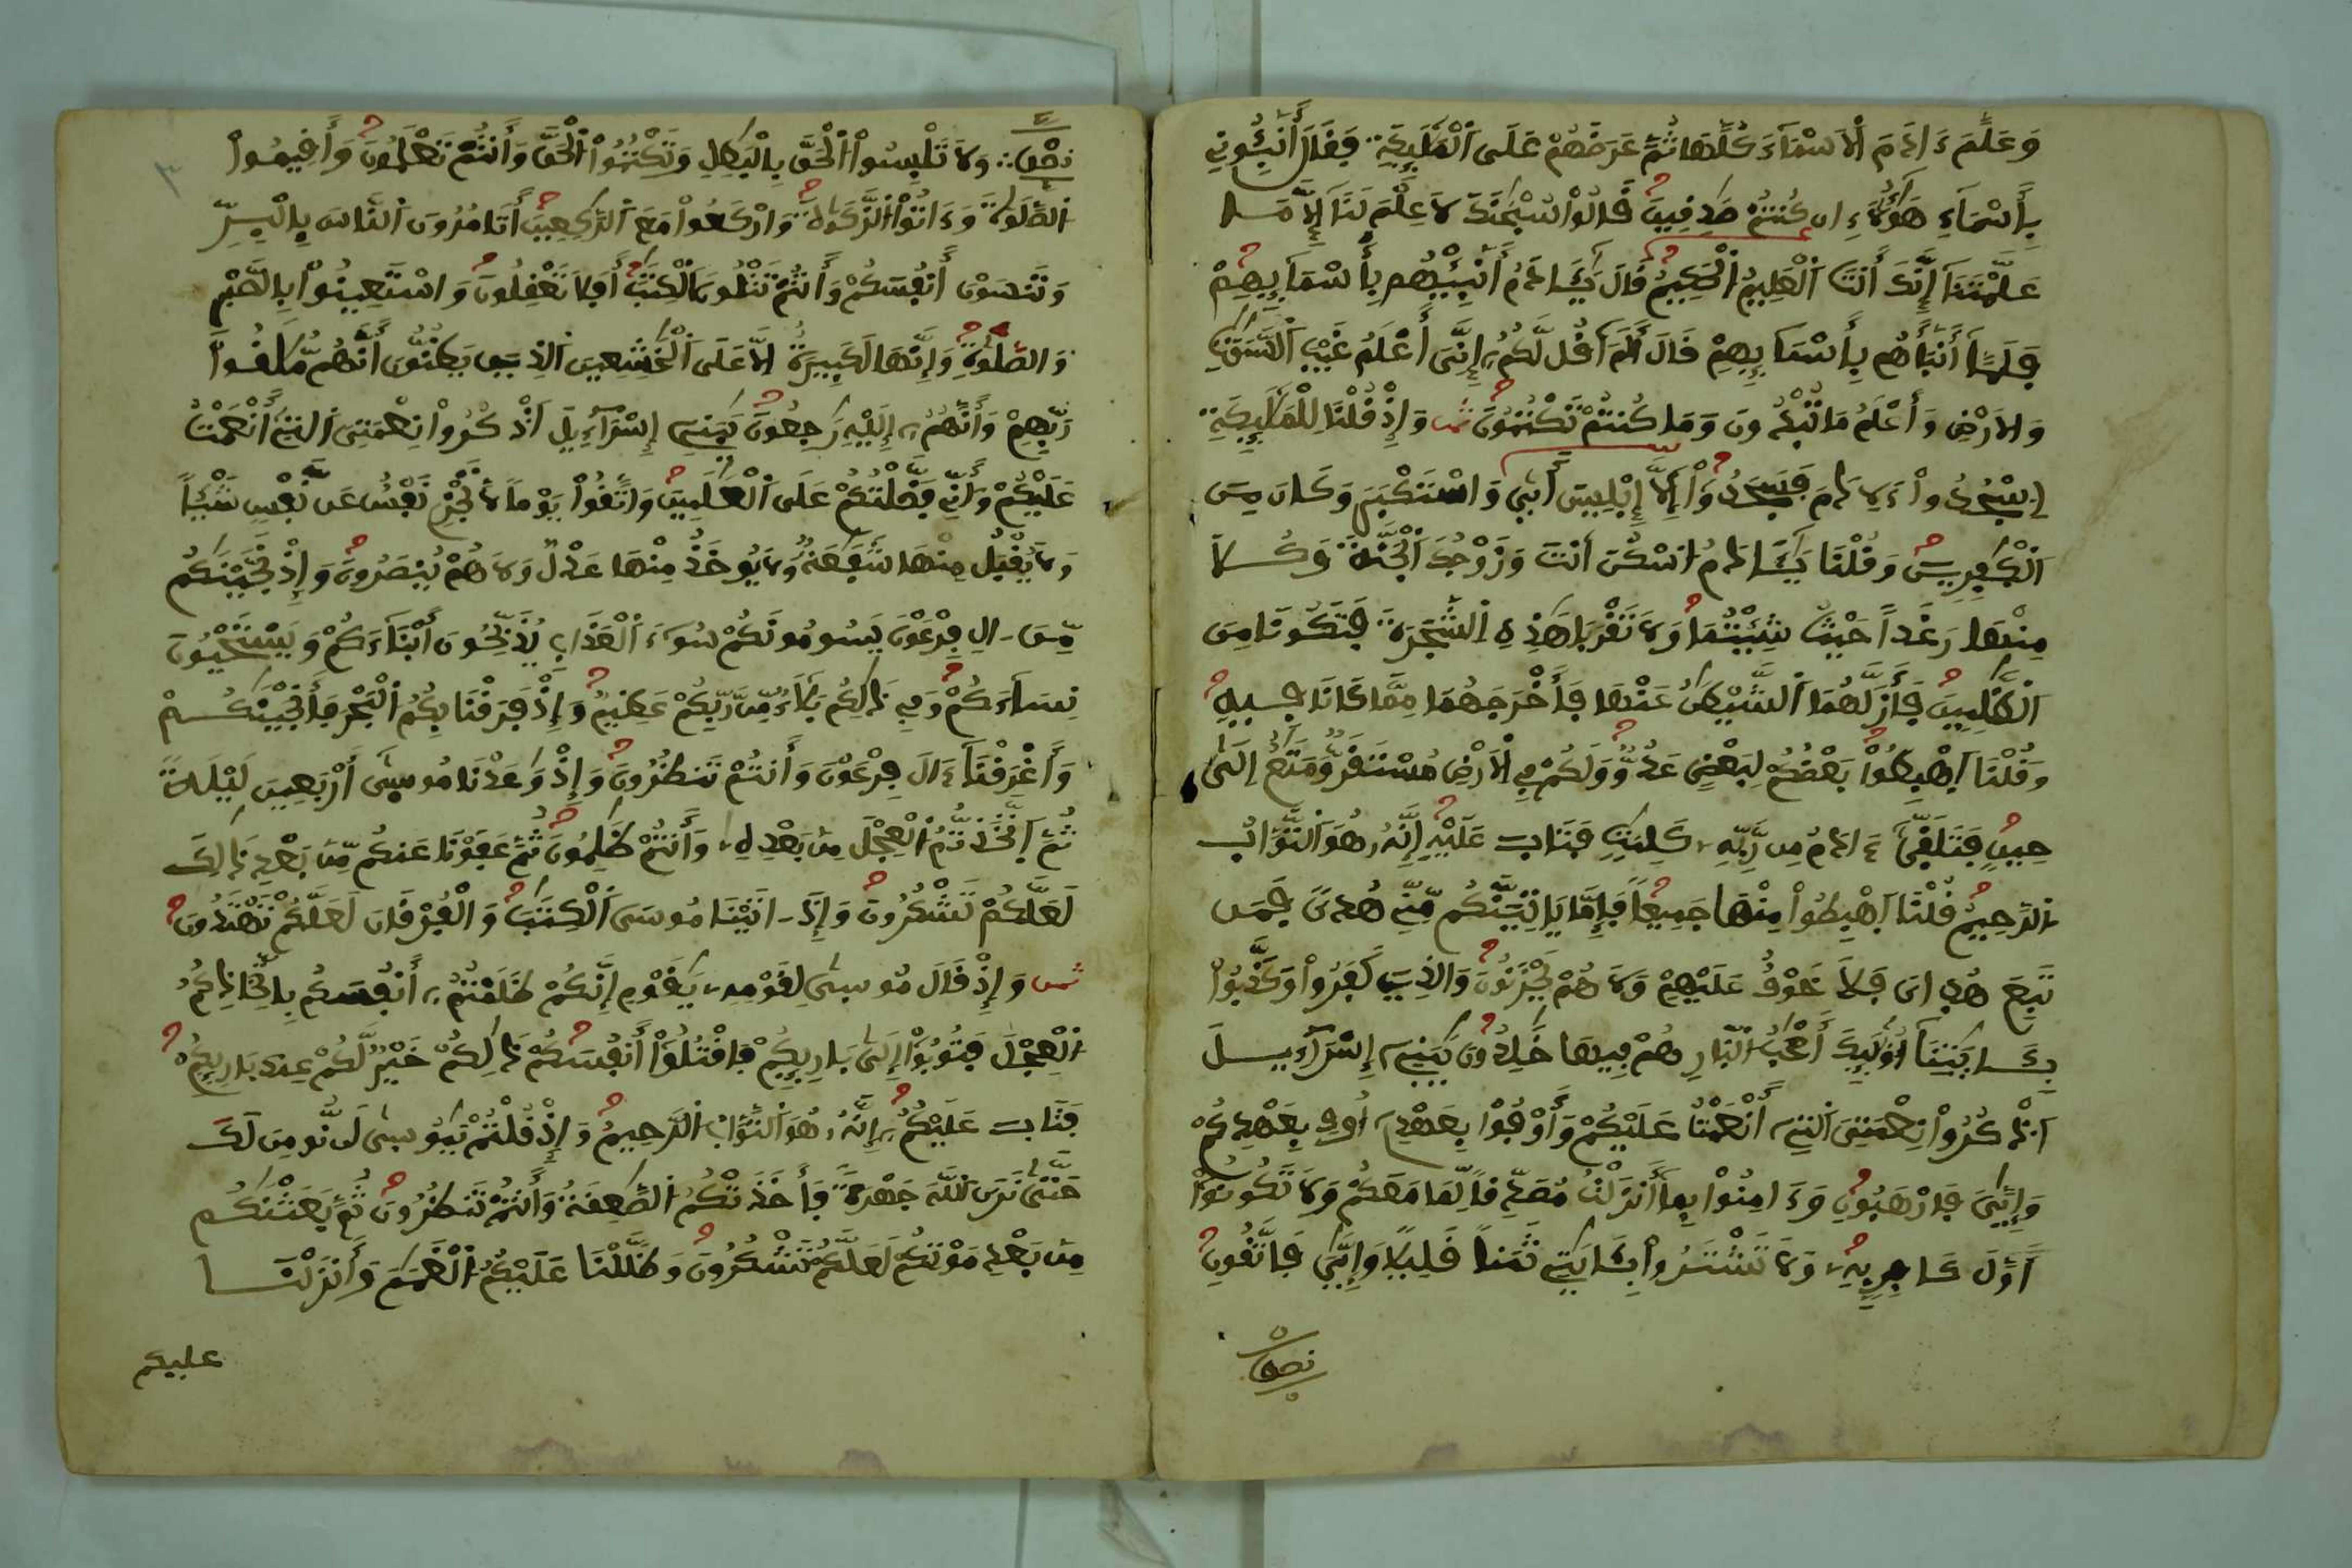 وَعَلَّمَ ءَادَمَ اَلَاسْمَآءَ كُلَّهَا ثُمَّ عَرَضَهُمْ عَلَى اَلْمَلَٰٓئِكَةِ فَقَالَ أَنۢبِـُٔونِے
بِأَسْمَآءِ هَٰٓؤُلَآءِ ان كُنتُمْ صَٰدِفِينَ قَالُواْ سُبْحَٰنَكَ لَا عِلْمَ لَنَآ إِلَّا مَا
عَلَّمْتَنَآ إِنَّكَ أَنتَ اَلْعَلِيمُ اُلْحَكِيمُ قَالَ يَٰٓـَٔادَمُ أَنۢبِئْهُم بِأَسْمَآئِهِمْ
فَلَمَّآ أَنۢبَأَهُم بِأَسْمَآئِهِمْ قَالَ أَلَمَ اَقُل لَّكُمُۥٓ إِنِّىَ أَعْلَمُ غَيْبَ اَلسَّمَٰوَٰتِ
وَالَارْضِ وَأَعْلَمُ مَا تُبْدُونَ وَمَا كُنتُمْ تَكْتُمُونَ ثمن وَإِذْ قُلْنَا لِلْمَلَٰٓئِكَةِ
اِسْجُدُواْ ءَلِادَمَ فَسَجَدُوٓاْ إِلَّآ إِبْلِيسَ أَبٜىٰ وَاسْتَكْبَرَ وَكَانَ مِنَ
اَلْكَٰفِرِينَ وَقُلْنَا يَٰٓـَٔادَمُ اُسْكُنَ اَنتَ وَزَوْجُكَ اَلْجَنَّةَ وَكُلَا
مِنْهَا رَغَداً حَيْثُ شِئْتُمَا وَلَا تَقْرَبَا هَٰذِهِ اِلشَّجَرَةَ فَتَكُونَا مِنَ
اَلظَّٰلِمِينَ فَأَزَلَّهُمَا اَلشَّيْطَٰنُ عَنْهَا فَأَخْرَجَهُمَا مِمَّا كَانَا فِيهِ
وَقُلْنَا اَهْبِطُواْ بَعْضُكُمْ لِبَعْضٍ عَدُوٌّ وَلَكُمْ فِے اِلَارْضِ مُسْتَقَرٌّ وَمَتَٰعٌ اِلَىٰ
حِينٍ فَتَلَقّٜىٰٓ ءَادَمُ مِن رَّبِّهِۦ كَلِمَٰتٍ فَتَابَ عَلَيْهِ إِنَّهُۥ هُوَ اَلتَّوَّابُ
اُلرَّحِيمُ قُلْنَا اَهْبِطُواْ مِنْهَا جَمِيعاً فَإِمَّا يَاتِيَنَّكُم مِّنِّے هُدىً فَمَن
تَبِعَ هُدَاىَ فَلَا خَوْفٌ عَلَيْهِمْ وَلَا هُمْ يَحْزَنُونَ وَالذِينَ كَفَرُواْ وَكَذَّبُواْ
بِـَٔايَٰتِنَآ أُوْلَٰٓئِكَ أَصْحَٰبُ اُلنّ۪ارِ هُمْ فِيهَا خَٰلِدُونَ يَٰبَنِےٓ إِسْرَآءِيلَ
اَذْكُرُواْ نِعْمَتِىَ اَلتِےٓ أَنْعَمْتُ عَلَيْكُمْ وَأَوْفُواْ بِعَهْدِےٓ أُوفِ بِعَهْدِكُمْ
وَإِيَّٰىَ فَارْهَبُونِ وَءَامِنُواْ بِمَآ أَنزَلْتُ مُصَدِّقاً لِّمَا مَعَكُمْ وَلَا تَكُونُوٓاْ
أَوَّلَ كَافِرٍ بِهِۦ وَلَا تَشْتَرُواْ بِـَٔايَٰتِے ثَمَناً قَلِيلًا وَإِيَّٰىَ فَاتَّقُونِ
نصف
نصف وَلَا تَلْبِسُواْ اَلْحَقَّ بِالْبَٰطِلِ وَتَكْتُمُواْ اَلْحَقَّ وَأَنتُمْ تَعْلَمُونَ وَأَقِيمُواْ
اَلصَّلَوٰةَ وَءَاتُواْ اَلزَّكَوٰةَ وَارْكَعُواْ مَعَ اَلرَّٰكِعِينَ أَتَامُرُونَ اَلنَّاسَ بِالْبِرِّ
وَتَنسَوْنَ أَنفُسَكُمْ وَأَنتُمْ تَتْلُونَ اَلْكِتَٰبَ أَفَلَا تَعْقِلُونَ وَاسْتَعِينُواْ بِالصَّبْرِ
وَالصَّلَوٰةِ وَإِنَّهَا لَكَبِيرَةٌ اِلَّا عَلَى اَلْخَٰشِعِينَ اَلذِينَ يَظُنُّونَ أَنَّهُم مُّلَٰقُواْ
رَبِّهِمْ وَأَنَّهُمُۥٓ إِلَيْهِ رَٰجِعُونَ يَٰبَنِےٓ إِسْرَآءِيلَ اَذْكُرُواْ نِعْمَتِىَ اَلتِےٓ أَنْعَمْتُ
عَلَيْكُمْ وَأَنِّے فَضَّلْتُكُمْ عَلَى اَلْعَٰلَمِينَ وَاتَّقُواْ يَوْماً لَّا تَجْزِے نَفْسٌ عَن نَّفْسٍ شَيْـٔاً
وَلَا يُقْبَلُ مِنْهَا شَفَٰعَةٌ وَلَا يُوخَذُ مِنْهَا عَدْلٌ وَلَا هُمْ يُنصَرُونَ وَإِذْ نَجَّيْنَٰكُم
مِّنَ ـالِ فِرْعَوْنَ يَسُومُونَكُمْ سُوٓءَ اَلْعَذَابِ يُذَبِّحُونَ أَبْنَآءَكُمْ وَيَسْتَحْيُونَ
نِسَآءَكُمْ وَفِے ذَٰلِكُم بَلَآءٌ مِّن رَّبِّكُمْ عَظِيمٌ وَإِذْ فَرَقْنَا بِكُمُ اُلْبَحْرَ فَأَنجَيْنَٰكُمْ
وَأَغْرَقْنَآ ءَالَ فِرْعَوْنَ وَأَنتُمْ تَنظُرُونَ وَإِذْ وَٰعَدْنَا مُوسٜىٰٓ أَرْبَعِينَ لَيْلَةً
ثُمَّ اَتَّخَذتُّمُ اُلْعِجْلَ مِنۢ بَعْدِهِۦ وَأَنتُمْ ظَٰلِمُونَ ثُمَّ عَفَوْنَا عَنكُم مِّنۢ بَعْدِ ذَٰلِكَ
لَعَلَّكُمْ تَشْكُرُونَ وَإِذَ ـاتَيْنَا مُوسَى اَلْكِتَٰبَ وَالْفُرْقَانَ لَعَلَّكُمْ تَهْتَدُونَ
ثمن وَإِذْ قَالَ مُوسٜىٰ لِقَوْمِهِۦ يَٰقَوْمِ إِنَّكُمْ ظَلَمْتُمُۥٓ أَنفُسَكُم بِاتِّخَاذِكُمُ
اُلْعِجْلَ فَتُوبُوٓاْ إِلَىٰ بَارِئِكُمْ فَاقْتُلُوٓاْ أَنفُسَكُمْ ذَٰلِكُمْ خَيْرٌ لَّكُمْ عِندَ بَارِئِكُمْ
فَتَابَ عَلَيْكُمُۥٓ إِنَّهُۥ هُوَ اَلتَّوَّابُ اُلرَّحِيمُ وَإِذْ قُلْتُمْ يَٰمُوسٜىٰ لَن نُّومِنَ لَكَ
حَتَّىٰ نَرَى اَللَّهَ جَهْرَةً فَأَخَذَتْكُمُ اُلصَّٰعِقَةُ وَأَنتُمْ تَنظُرُونَ ثُمَّ بَعَثْنَٰكُم
مِّنۢ بَعْدِ مَوْتِكُمْ لَعَلَّكُمْ تَشْكُرُونَ وَظَلَّلْنَا عَلَيْكُمُ اُلْغَمَٰمَ وَأَنزَلْنَا
عليكم